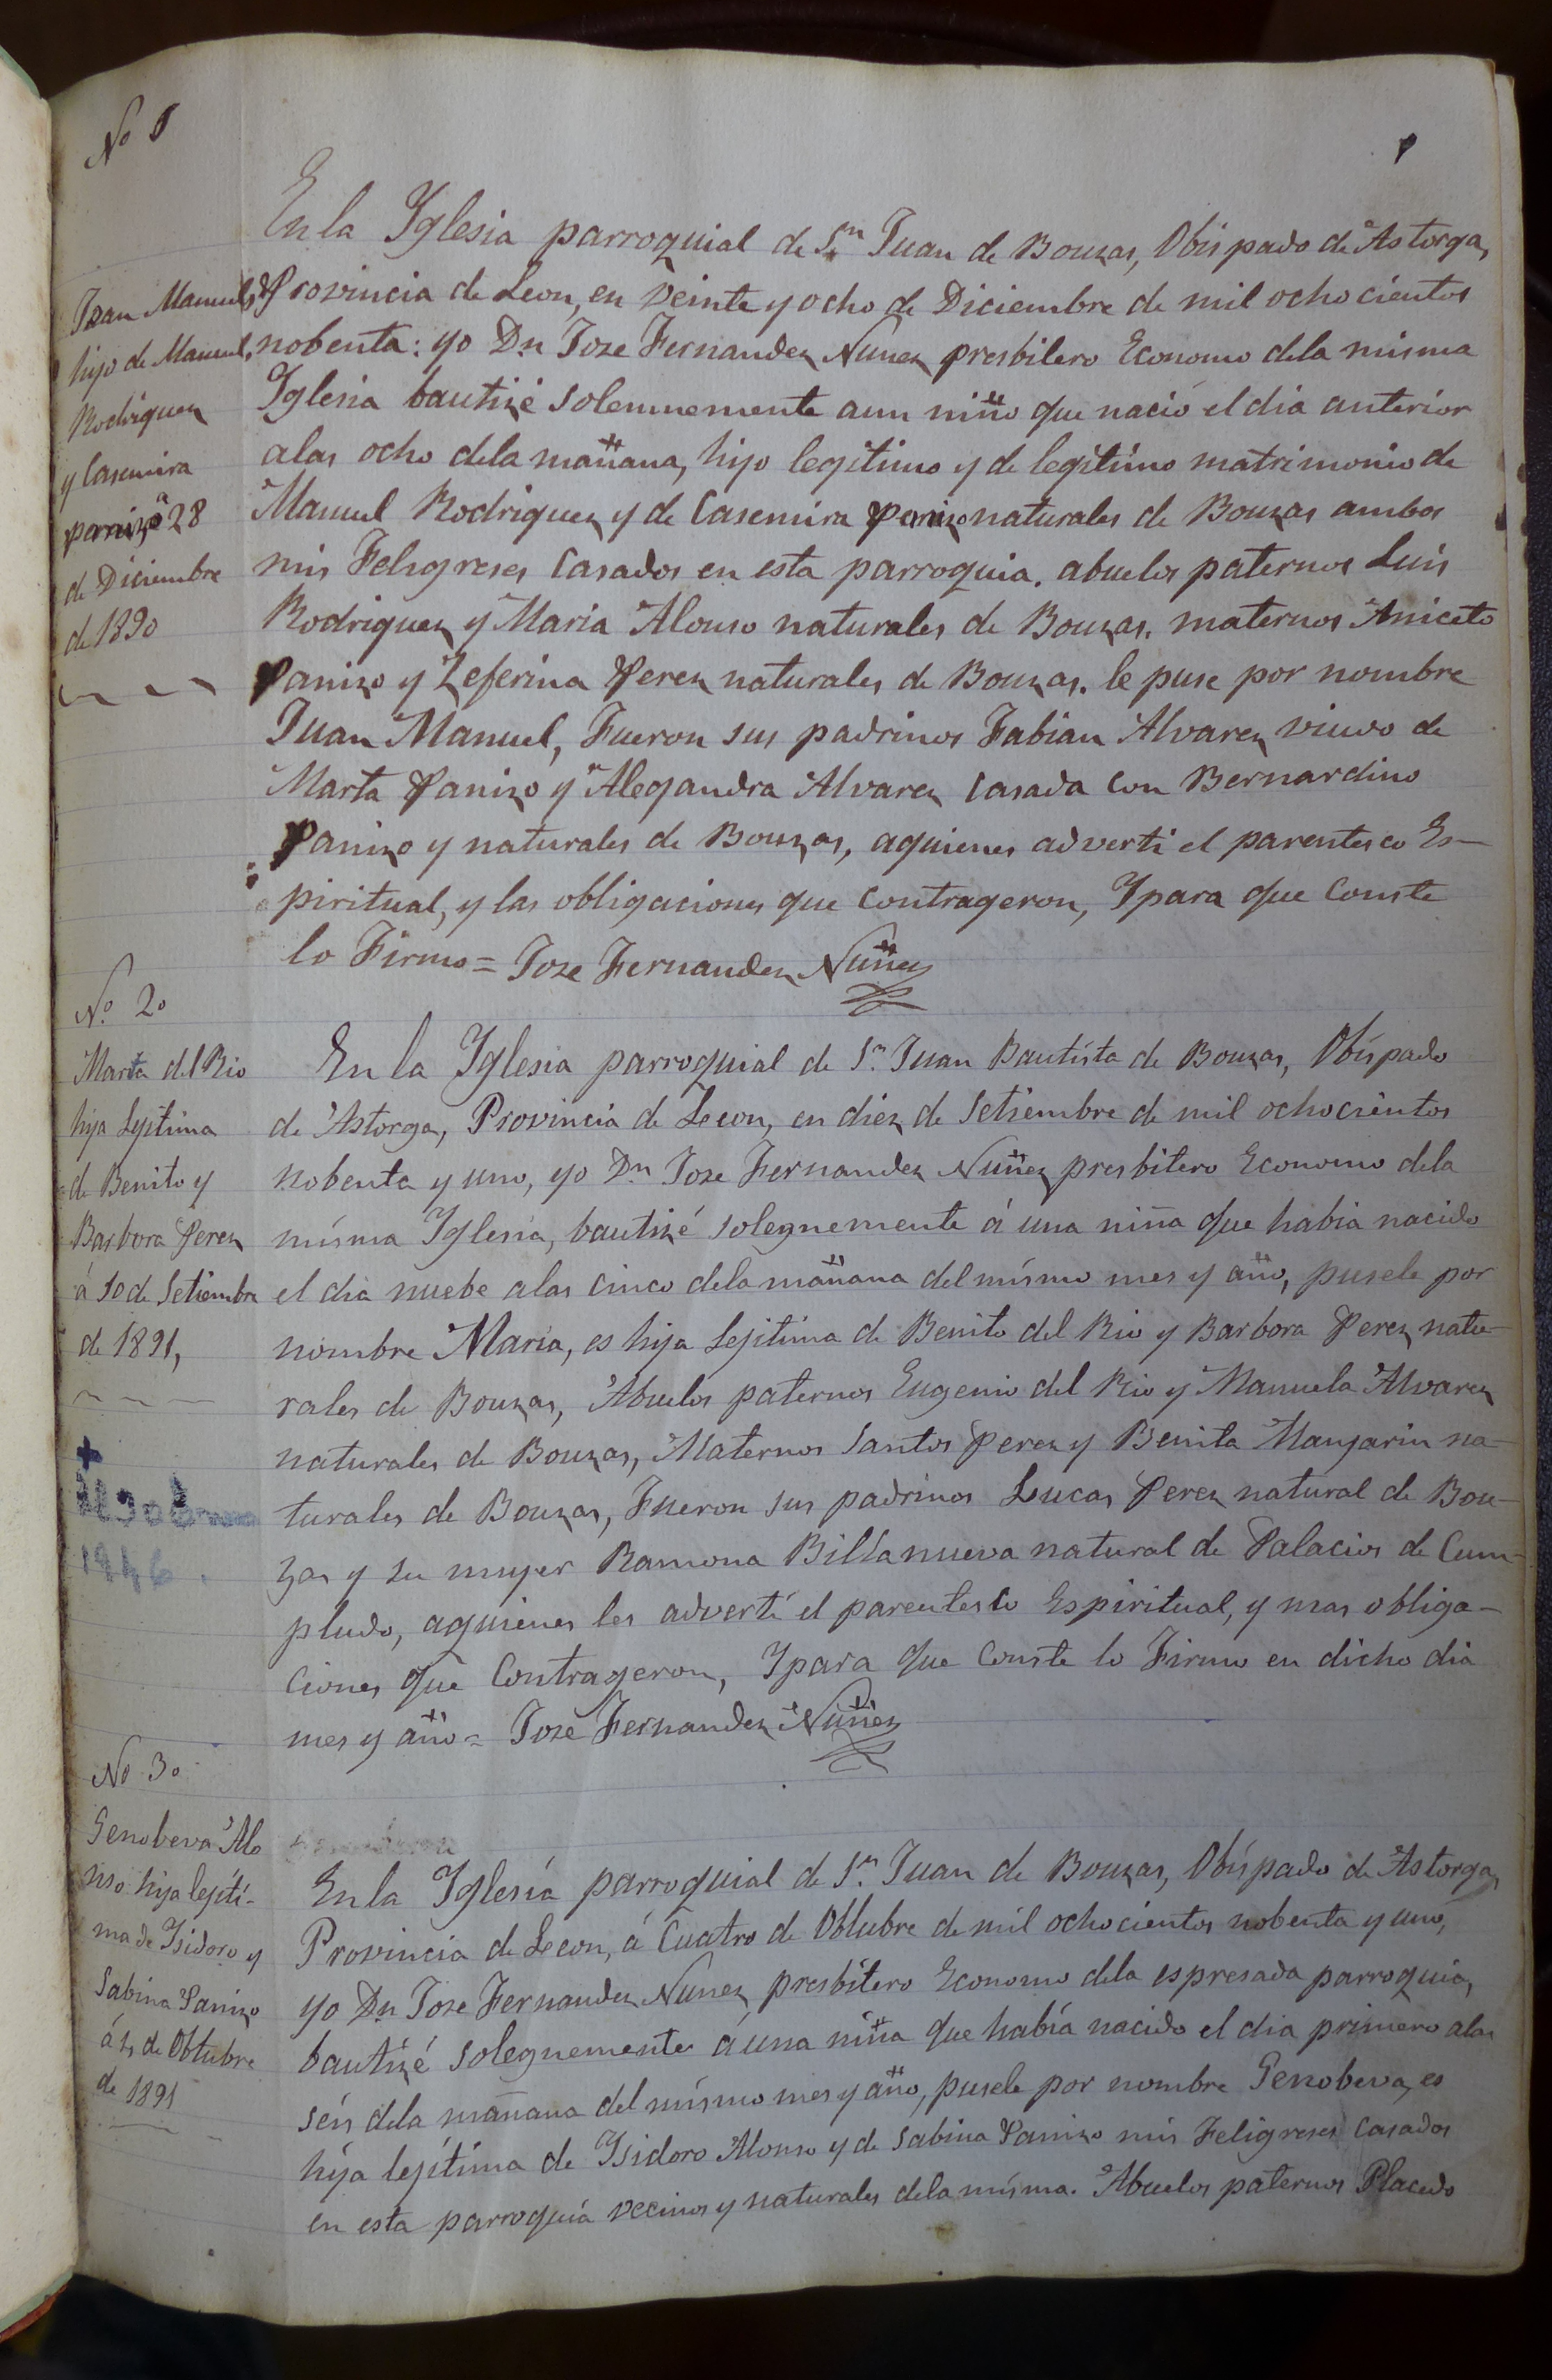 Nº 1
Juan Manuel,
hijo de Manuel
Rodriguez
y Casemira
panizo 28
de Diciembre
de 1890
En la Yglesia parroquial de Sn Juan de Bouzas, Obispado de Astorga,
Provincia de Leon, en veinte y ocho de Diciembre de mil ocho cientos
nobenta: yo Dn Joze Fernandez Nunez presbitero Economo dela misma
Yglesia bautizé solemnemente aun niño que nació el dia anterior
alas ocho dela mañana, hijo legitimo y de legitimo matrimonio de
Manuel Rodriguez y de Casemira Panizo naturales de Bouzas ambos
mis Feligreses Casados en esta parroquia. abuelos paternos Luis
Rodriguez y Maria Alonso naturales de Bouzas. maternos Aniceto
Panizo y Zeferina Perez naturales de Bouzas. le puse por nombre
Juan Manuel, Fueron sus padrinos Fabian Alvarez viudo de
Marta Panizo y Alegandra Alvarez casada con Bernardino
Panizo y naturales de Bouzas, aquienes adverti el parentesco Es-
piritual, y las obligaciones que contrageron, Ypara que conste
lo Firmo = Joze Fernandez Nuñez
Nº 2º
Marta del Rio
hija Lejitima
de Benito y
Barbora Perez
á 10 de Setiembre
de 1891,
En la Yglesia parroquial de Sn Juan Bautista de Bouzas, Obispado
de Astorga, Provincia de Leeon, en diez de Setiembre de mil ochocientos
nobenta y uno, yo Dn Joze Fernandez Nuñez presbitero Economo dela
misma Yglesia, bautizé solegnemente á una niña que habia nacido
el dia nuebe alas cinco dela mañana del mismo mes y año, pusele por
nombre Maria, es hija Lejitima de Benito del Rio y Barbora Perez natu-
rales de Bouzas, Abuelos paternos Eugenio del Rio y Manuela Alvarez
naturales de Bouzas, Maternos Santos Perez y Benita Manjarin na-
turales de Bouzas, Fueron sus padrinos Lucas Perez natural de Bou-
zas y su mujer Ramona Billanueva natural de Palacios de Com-
pludo, aquienes les advertí el parentesco Espiritual, y mas obliga-
ciones que Contrageron, Ypara que Conste lo Firmo en dicho dia
mes y año = Joze Fernandez Nuñez
1946.
Nº 3º
Genobeva Alo
nso hija lejiti-
ma de Isidoro y
Sabina Panizo
á 4 de Obtubre
de 1891
En la Yglesia parroquial de Sn Juan de Bouzas, Obispado de Astorga,
Provincia de Leeon, á Cuatro de Obtubre de mil ochocientos nobenta y uno,
yo Dn Joze Fernandez Nunez, presbitero Economo dela espresada parroquia,
bautizé solegnemente á una niña que había nacido el dia primero alas
séis dela mañana del mismo mes y año, pusele por nombre Genobeva, es
hija lejítima de Ysidoro Alonso y de Sabina Panizo mis Feligreses Casados
en esta parroquia vecinos y naturales dela misma. Abuelos paternos Placido